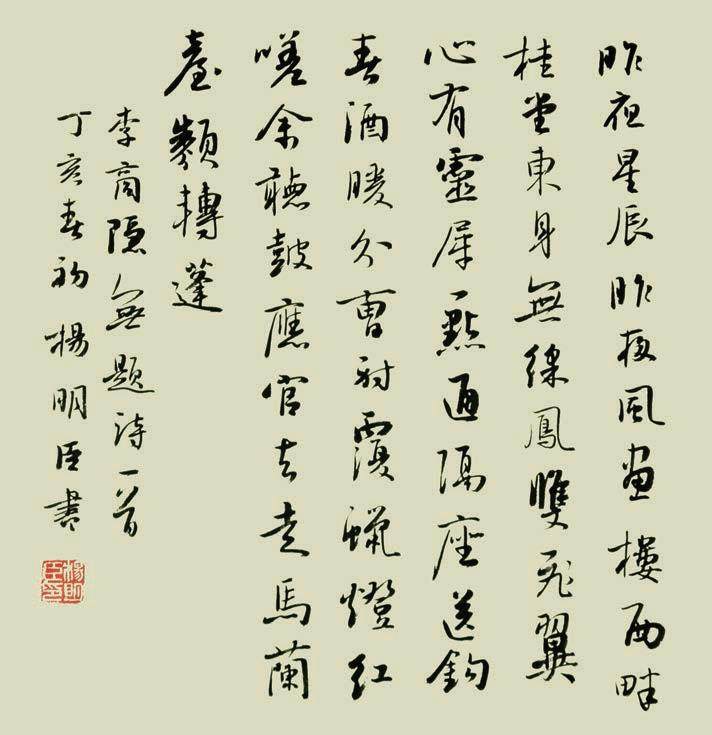 昨夜星辰昨夜風畫樓西畔
桂堂東身無綵鳳雙飛翼
心有靈犀一點通隔座送鈎
春酒暖分曹射覆蠟燈紅
嗟余聽鼓應官去走馬蘭
臺類轉蓬
李商隱無題詩一首
丁亥春初楊明臣書
楊明臣印